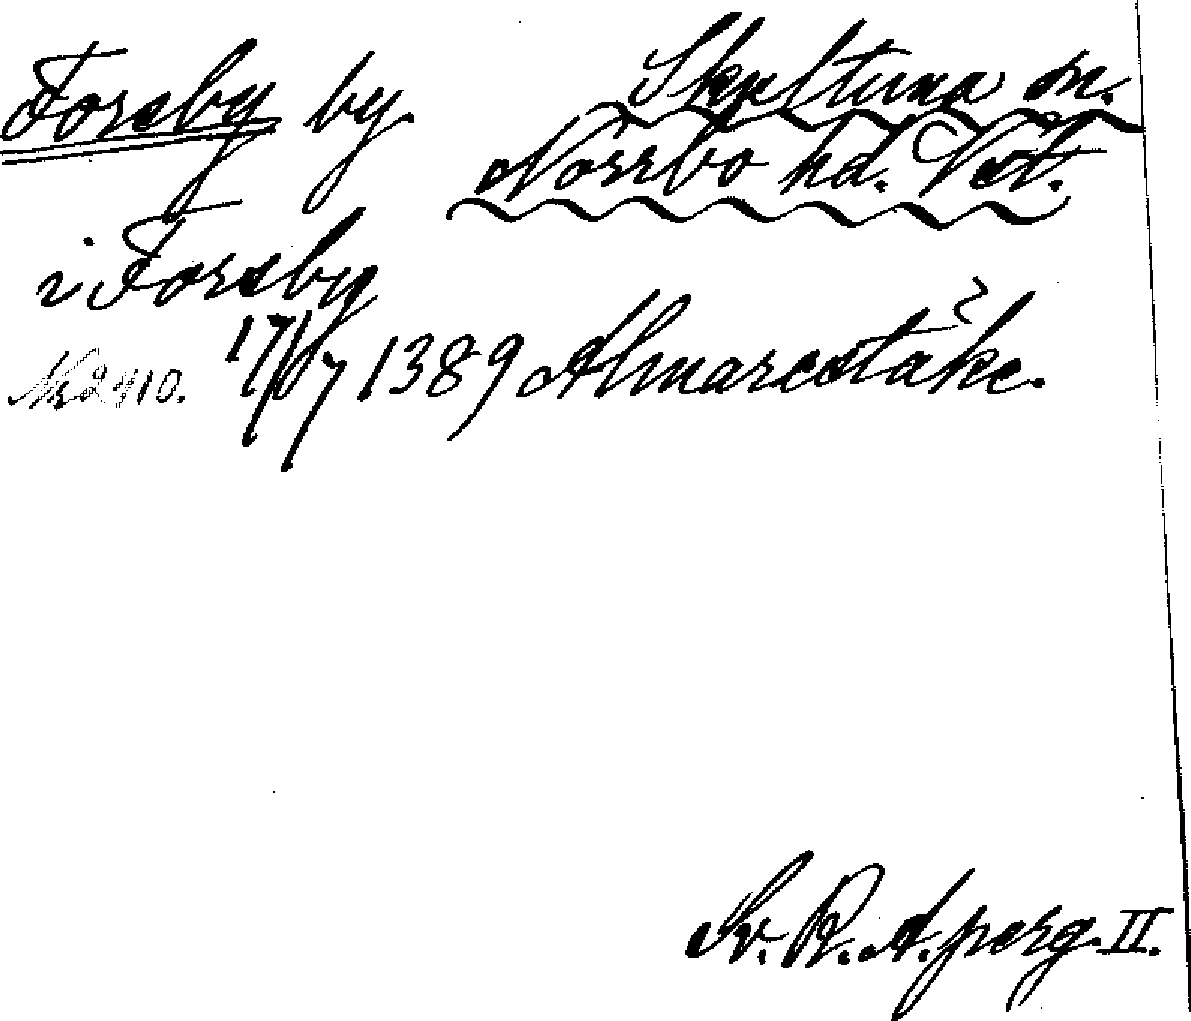 Forsby by. Skultuna sn.
Norrbo hd. Väst.
i Forsby
Nr 2410. 17/7 1389 Almarestäke.
Sv. R. A. perg. II.